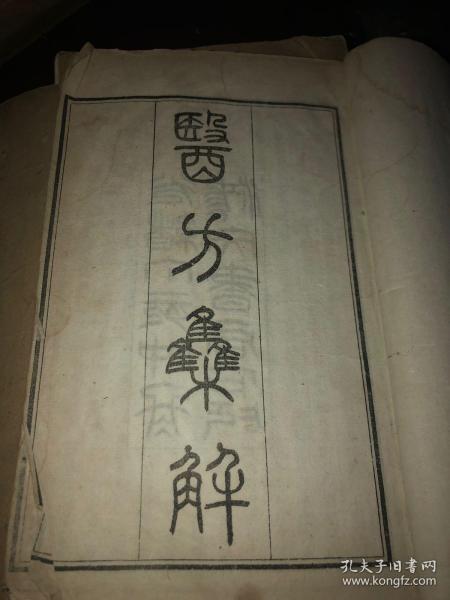 醫方集解
孔夫子旧书网
www.kongfz.com